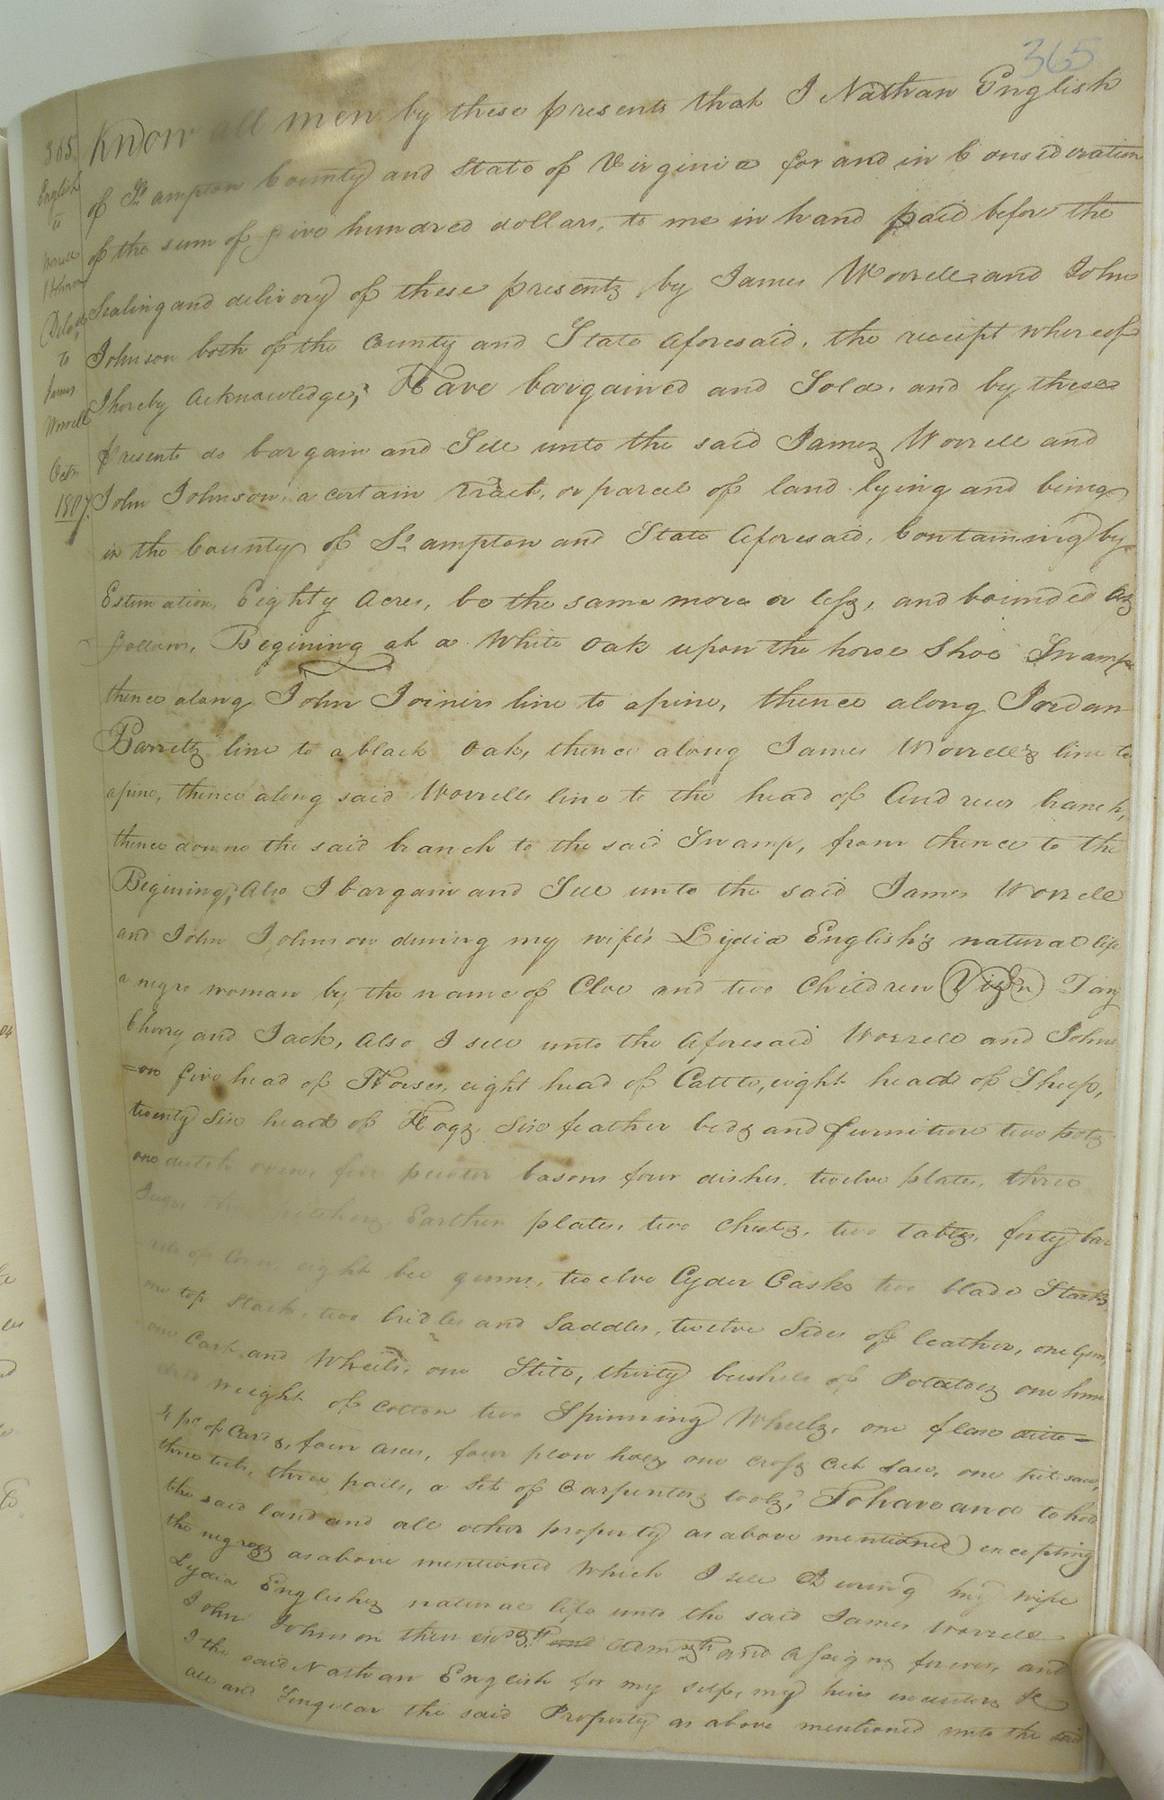 365
365
English
to
Worrell
& Johnson
Deld
to
James
Worrell
Octr
1807
Know all men by these presents that I Nathan English
of So.ampton County and State of Virginia for and in Consideration
of the sum of five hundred dollars, to me in hand paid before the
Sealing and delivery of these presents, by James Worrell and John
Johnson both of the County and State aforesaid, the receipt whereof
I hereby Acknowledge, Have bargained and Sold, and by these
presents do bargain and Sell unto the said James Worrell and
John Johnson, a certain tract, or parcel of land lying and being
in the County of So.ampton and State Aforesaid, Containing by
Estimation, Eighty Acres, be the same more or less, and bounded as
follows, Begining at a White Oak upon the horse Shoe Swamp
thence along John Joiners line to a pine, thence along Jordan
Barretts line to a black Oak, thence along James Worrell's line to
a pine, thence along said Worrells line to the head of Andrews branch,
thence downe the said branch to the said Swamp, from thence to the
Begining, Also I bargain and Sell unto the said James Worrell
and John Johnson during my wife's Lydia English's natural life
a negro woman by the name of Cloe and two Children Day
Cherry and Jack, Also I sell unto the Aforesaid Worrell and Johns
=on five head of Horses, eight head of Cattle, eight head of Sheep,
twenty Six head of Hogs, Six feather beds and furniture two pots
one dutch oven, five pewter basons four dishes, twelve plates, three
Earthen plates, two Chests, two tables, forty bar
rels of Corn, eight bee gums, twelve Cyder Casks two blade Stacks,
one top Stack, two bridles and Saddles, twelve Sides of leather, one Gun,
one Cart and Wheels, one Still, thirty bushels of Potatoes one hun
dred weight of Cotton two Spinning Wheels, one flax ditto=
4 pr of Cards, four axes, four plow hoes, one cross cut Saw, one
three tubs, three pails, a Set of Carpenters tools, To have and to hold
the said land and all other property as above mentioned) excepting
the negroes as above mentioned Which I sell During my wife
Lydia Englishes natural life unto the said James Worrell
John Johnson their and Assigns forever, and
I the said Nathan English for my self, my heirs executors &c
all and Singular the said Property as above mentioned unto the said